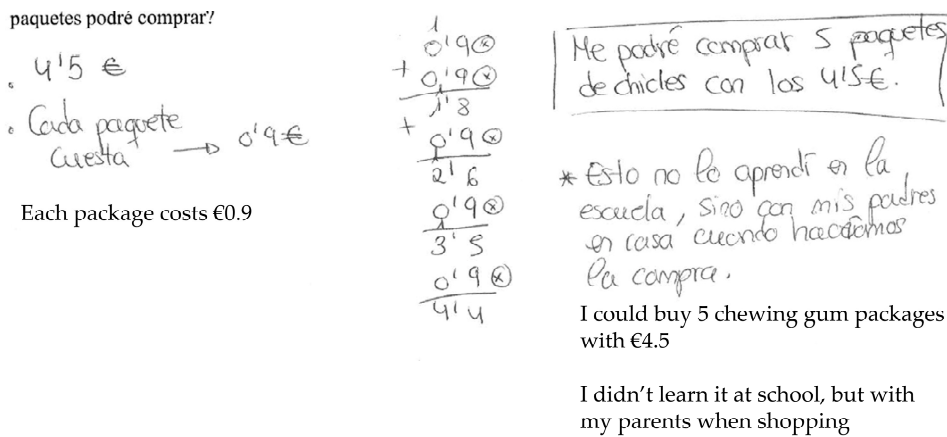 paquetes podré comprar?
. 4'5 €
. Cada paquete
cuesta → 0'9€
Each package costs €0.9
1
0'9 ⊗
+ 0,'9 ⊗
1'8
+ 0'9 ⊗
2'6
0'9 ⊗
3'5
0'9 ⊗
4'4
Me podré comprar 5 paquetes
de chicles con los 4'5€.
* Esto no lo aprendí en la
escuela, sino con mis padres
en casa cuando hacíamos
la compra.
I could buy 5 chewing gum packages
with €4.5
I didn't learn it at school, but with
my parents when shopping